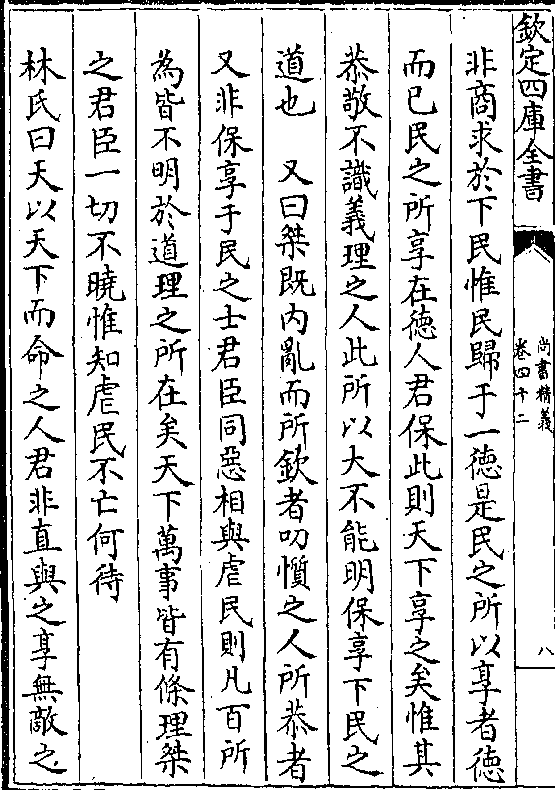 欽定四庫全書
尚書精義
卷四十二
八
非商求於下民惟民歸于一德是民之所以享者德
而已民之所享在德人君保此則天下享之矣惟其
恭敬不識義理之人此所以大不能明保享下民之
道也　又曰桀既内亂而所欽者叨懫之人所恭者
又非保享于民之士君臣同惡相與虐民則凡百所
為皆不明於道理之所在矣天下萬事皆有條理桀
之君臣一切不曉惟知虐民不亡何待
林氏曰天以天下而命之人君非直與之享無敵之